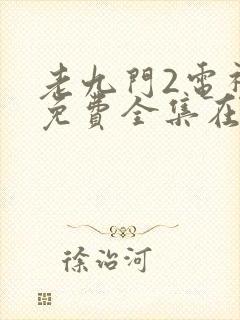 老九門2雷
免費全集在
徐治河